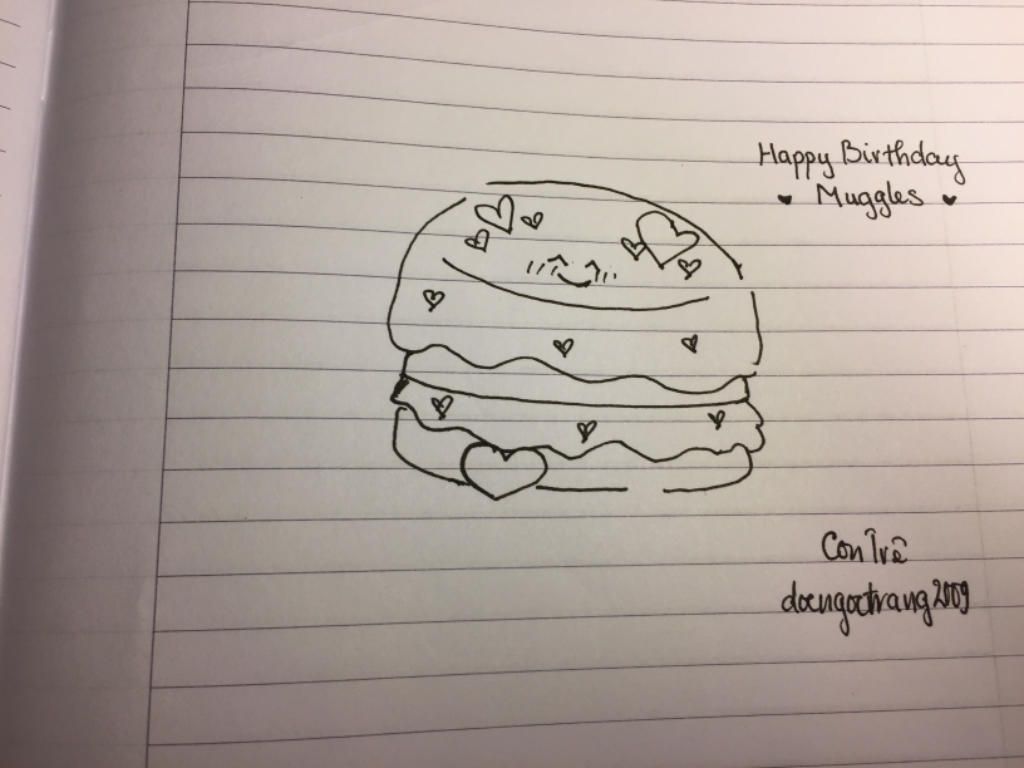 Happy Birthday
♥ Muggles ♥
doengoctrang2009